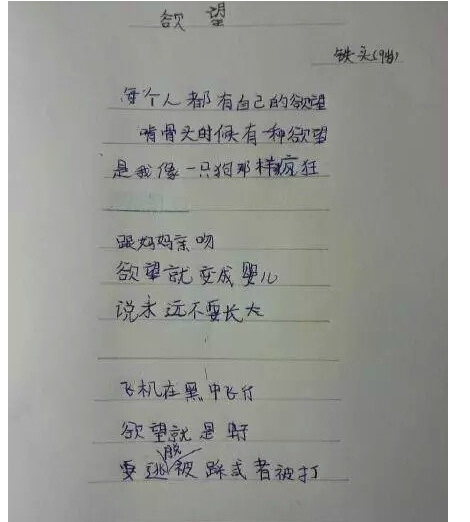 欲望
铁头(9岁)
每个人都有自己的欲望
啃骨头时候有一种欲望
是我像一只狗那样疯狂
跟妈妈亲吻
欲望就变成婴儿
说永远不要长大
飞机在黑中飞行
欲望就是
要逃脱被踩或者被打